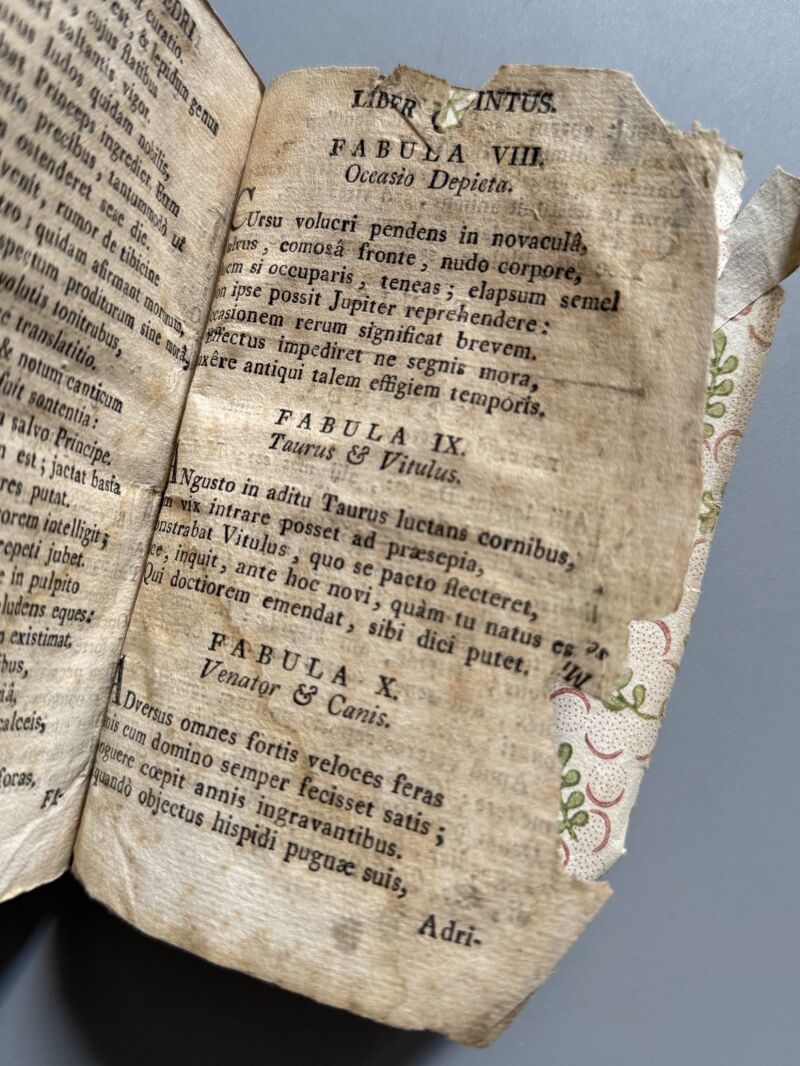 EDRI
curatio.
est, & lepidum genus
cujus flatibus
saltantis vigor.
Ludos quidam nobilis,
Princeps ingredier. Eum
precibus, tantummodò ut
ostenderet sese die.
venit, rumor de tibicine
: quidam afirmant mortuum,
spectum proditurum sine morâ,
volutis tonitrubus,
translatitio.
& notum canticum
fuit sententia:
salvo Principe.
est; jactat basia
res putat.
orem intelligit;
repeti jubet.
in pulpito
ludens eques:
existimat.
calceis,
foras.
FI-
LIBER INTUS.
FABULA VIII.
Occasio Depicta.
CUrsu volucri pendens in novaculâ,
alvus, comosâ fronte, nudo corpore,
uem si occuparis, teneas; elapsum semel
on ipse possit Jupiter reprehendere:
ccasionem rerum significat brevem.
ffectus impediret ne segnis mora,
nxêre antiqui talem effigiem temporis.
FABULA IX.
Taurus & Vitulus.
ANgusto in aditu Taurus luctans cornibus,
m vix intrare posset ad præsepia,
onstrabat Vitulus, quo se pacto flecteret,
ce, inquit, ante hoc novi, quàm tu natus es
Qui doctiorem emendat, sibi dici putet.
FABULA X.
Venator & Canis.
ADversus omnes fortis veloces feras
nis cum domino semper fecisset satis;
nguere cœpit annis ingravantibus.
quandò objectus hispidi pugnæ suis,
Adri-